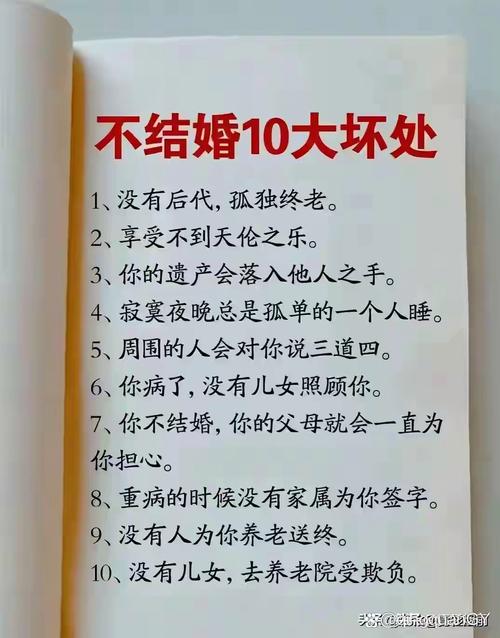 不结婚10大坏处
1、没有后代，孤独终老。
2、享受不到天伦之乐。
3、你的遗产会落入他人之手。
4、寂寞夜晚总是孤单的一个人睡。
5、周围的人会对你说三道四。
6、你病了，没有儿女照顾你。
7、你不结婚，你的父母就会一直为
你担心。
8、重病的时候没有家属为你签字。
9、没有人为你养老送终。
10、没有儿女，去养老院受欺负。